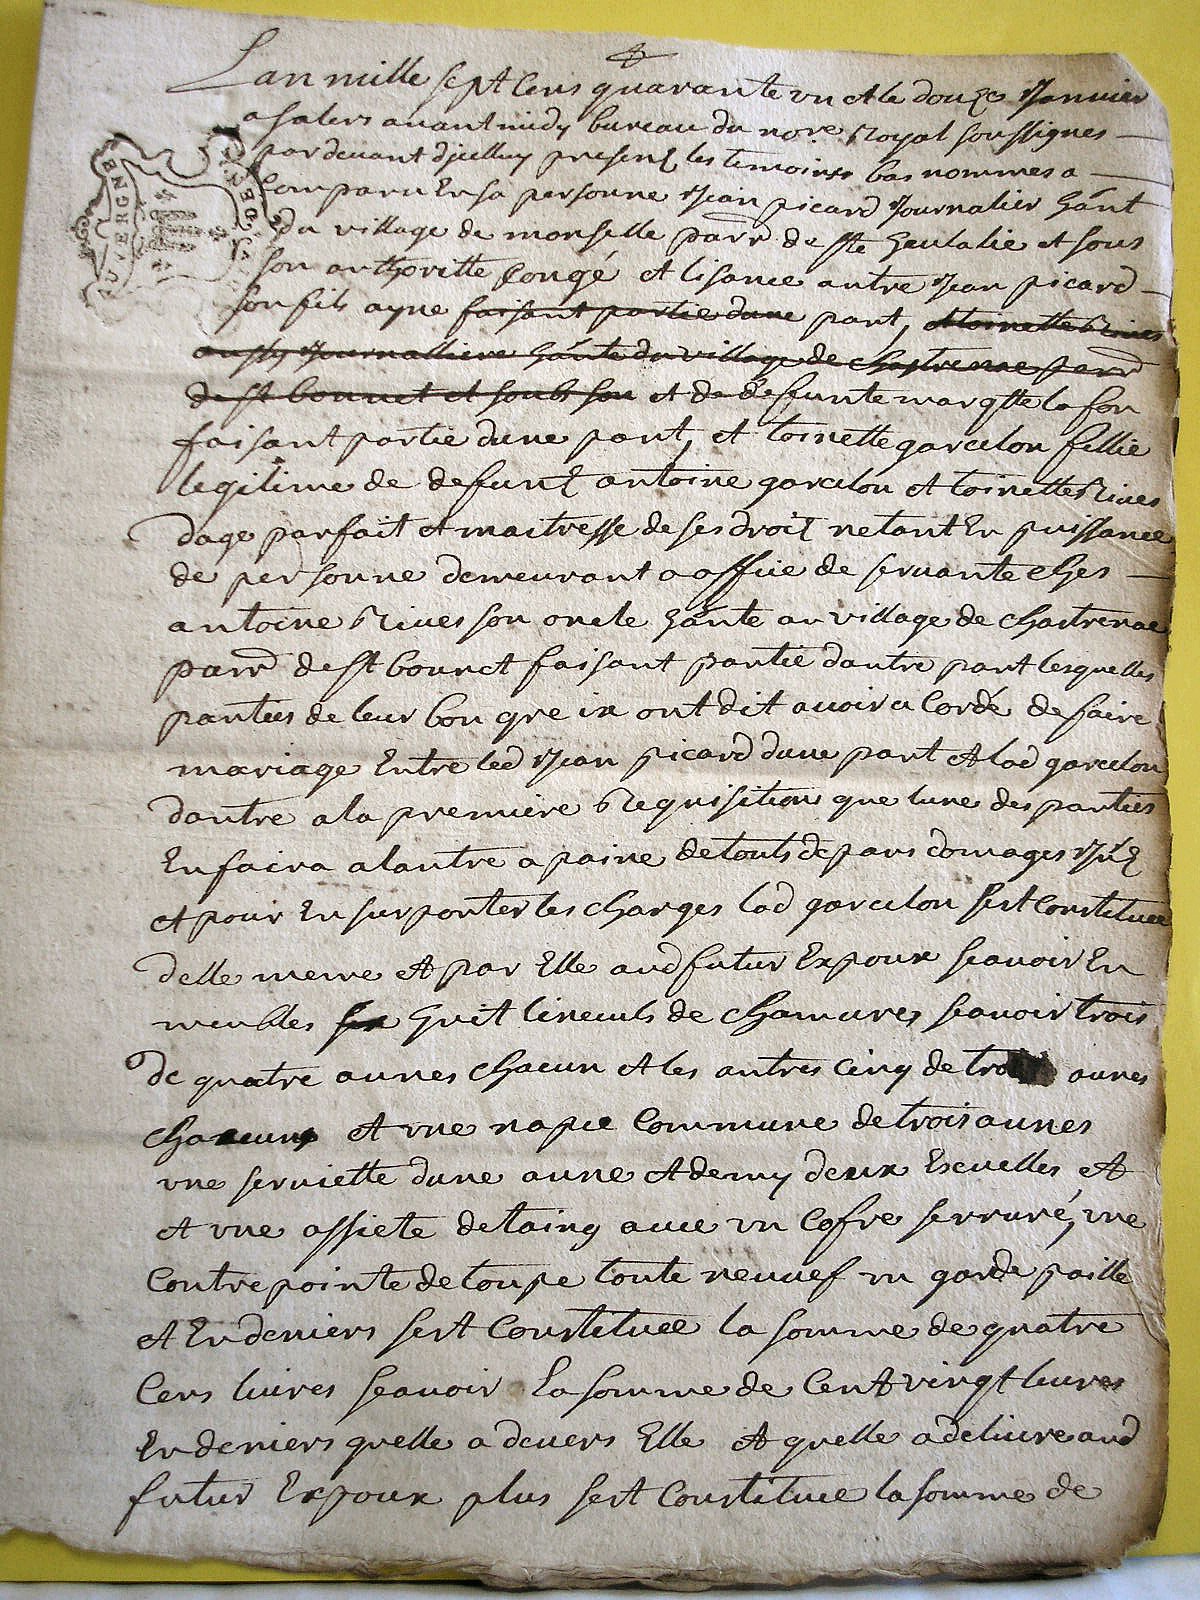 Lan mille sept Cens quarante un et le douze Janvier
a salers avant midy bureau du nore Royal soussignes
par devant present les temoins bas nommes a
Comparu En sa personne Jean picard Journalier hant
du village de monselle parr de ste Eeulalie et sous
son authoritte Congé et lisance autre Jean picard
son fils ayne faisant partie dune part, et toinette Rives
aussy Journalliere hante du village de chastrenac parr
de st bonnet et soubs son et de defunte margtte lafon
faisant partie dune part, et toinette garcelon fillie
legitime de defunt antoine garcelon et toinette Rives
dage parfait et maitresse de ses droit netant En puissance
de personne demeurant a office de servante ches
antoine Rives son oncle hante au village de chastrenac
parr de st bonnet faisant partie dautre part lesquelles
parties de leur bon gre ix ont dit avoir a Cordé de faire
mariage Entre led Jean picard dune part et lad garcelon
dautre a la premiere Requisition que lune des parties
En faira a lautre a paine de touts depans domages
et pour En surporter les charges lad garcelon sest Constituee
delle meme et par Elle aud futur Expoux scavoir En
meubles huit linceuls de chamvres scavoir trois
de quatre aunes chacun et les autres Cinq de trois aunes
chacuns et une napee Commune de trois aunes
une serviette dune aune et demy deux Escuelles et
et une assiete detaing avec un Cofre serruré, une
Contrepointe de toupe toute neuuef un garde paille
et En deniers sest Constituee la somme de quatre
Cens livres scavoir la somme de Cent vingt livres
En deniers quelle a devers Elle et quelle a delivre aud
futur Expoux plus sest Constituee la somme de
AUVERGNE